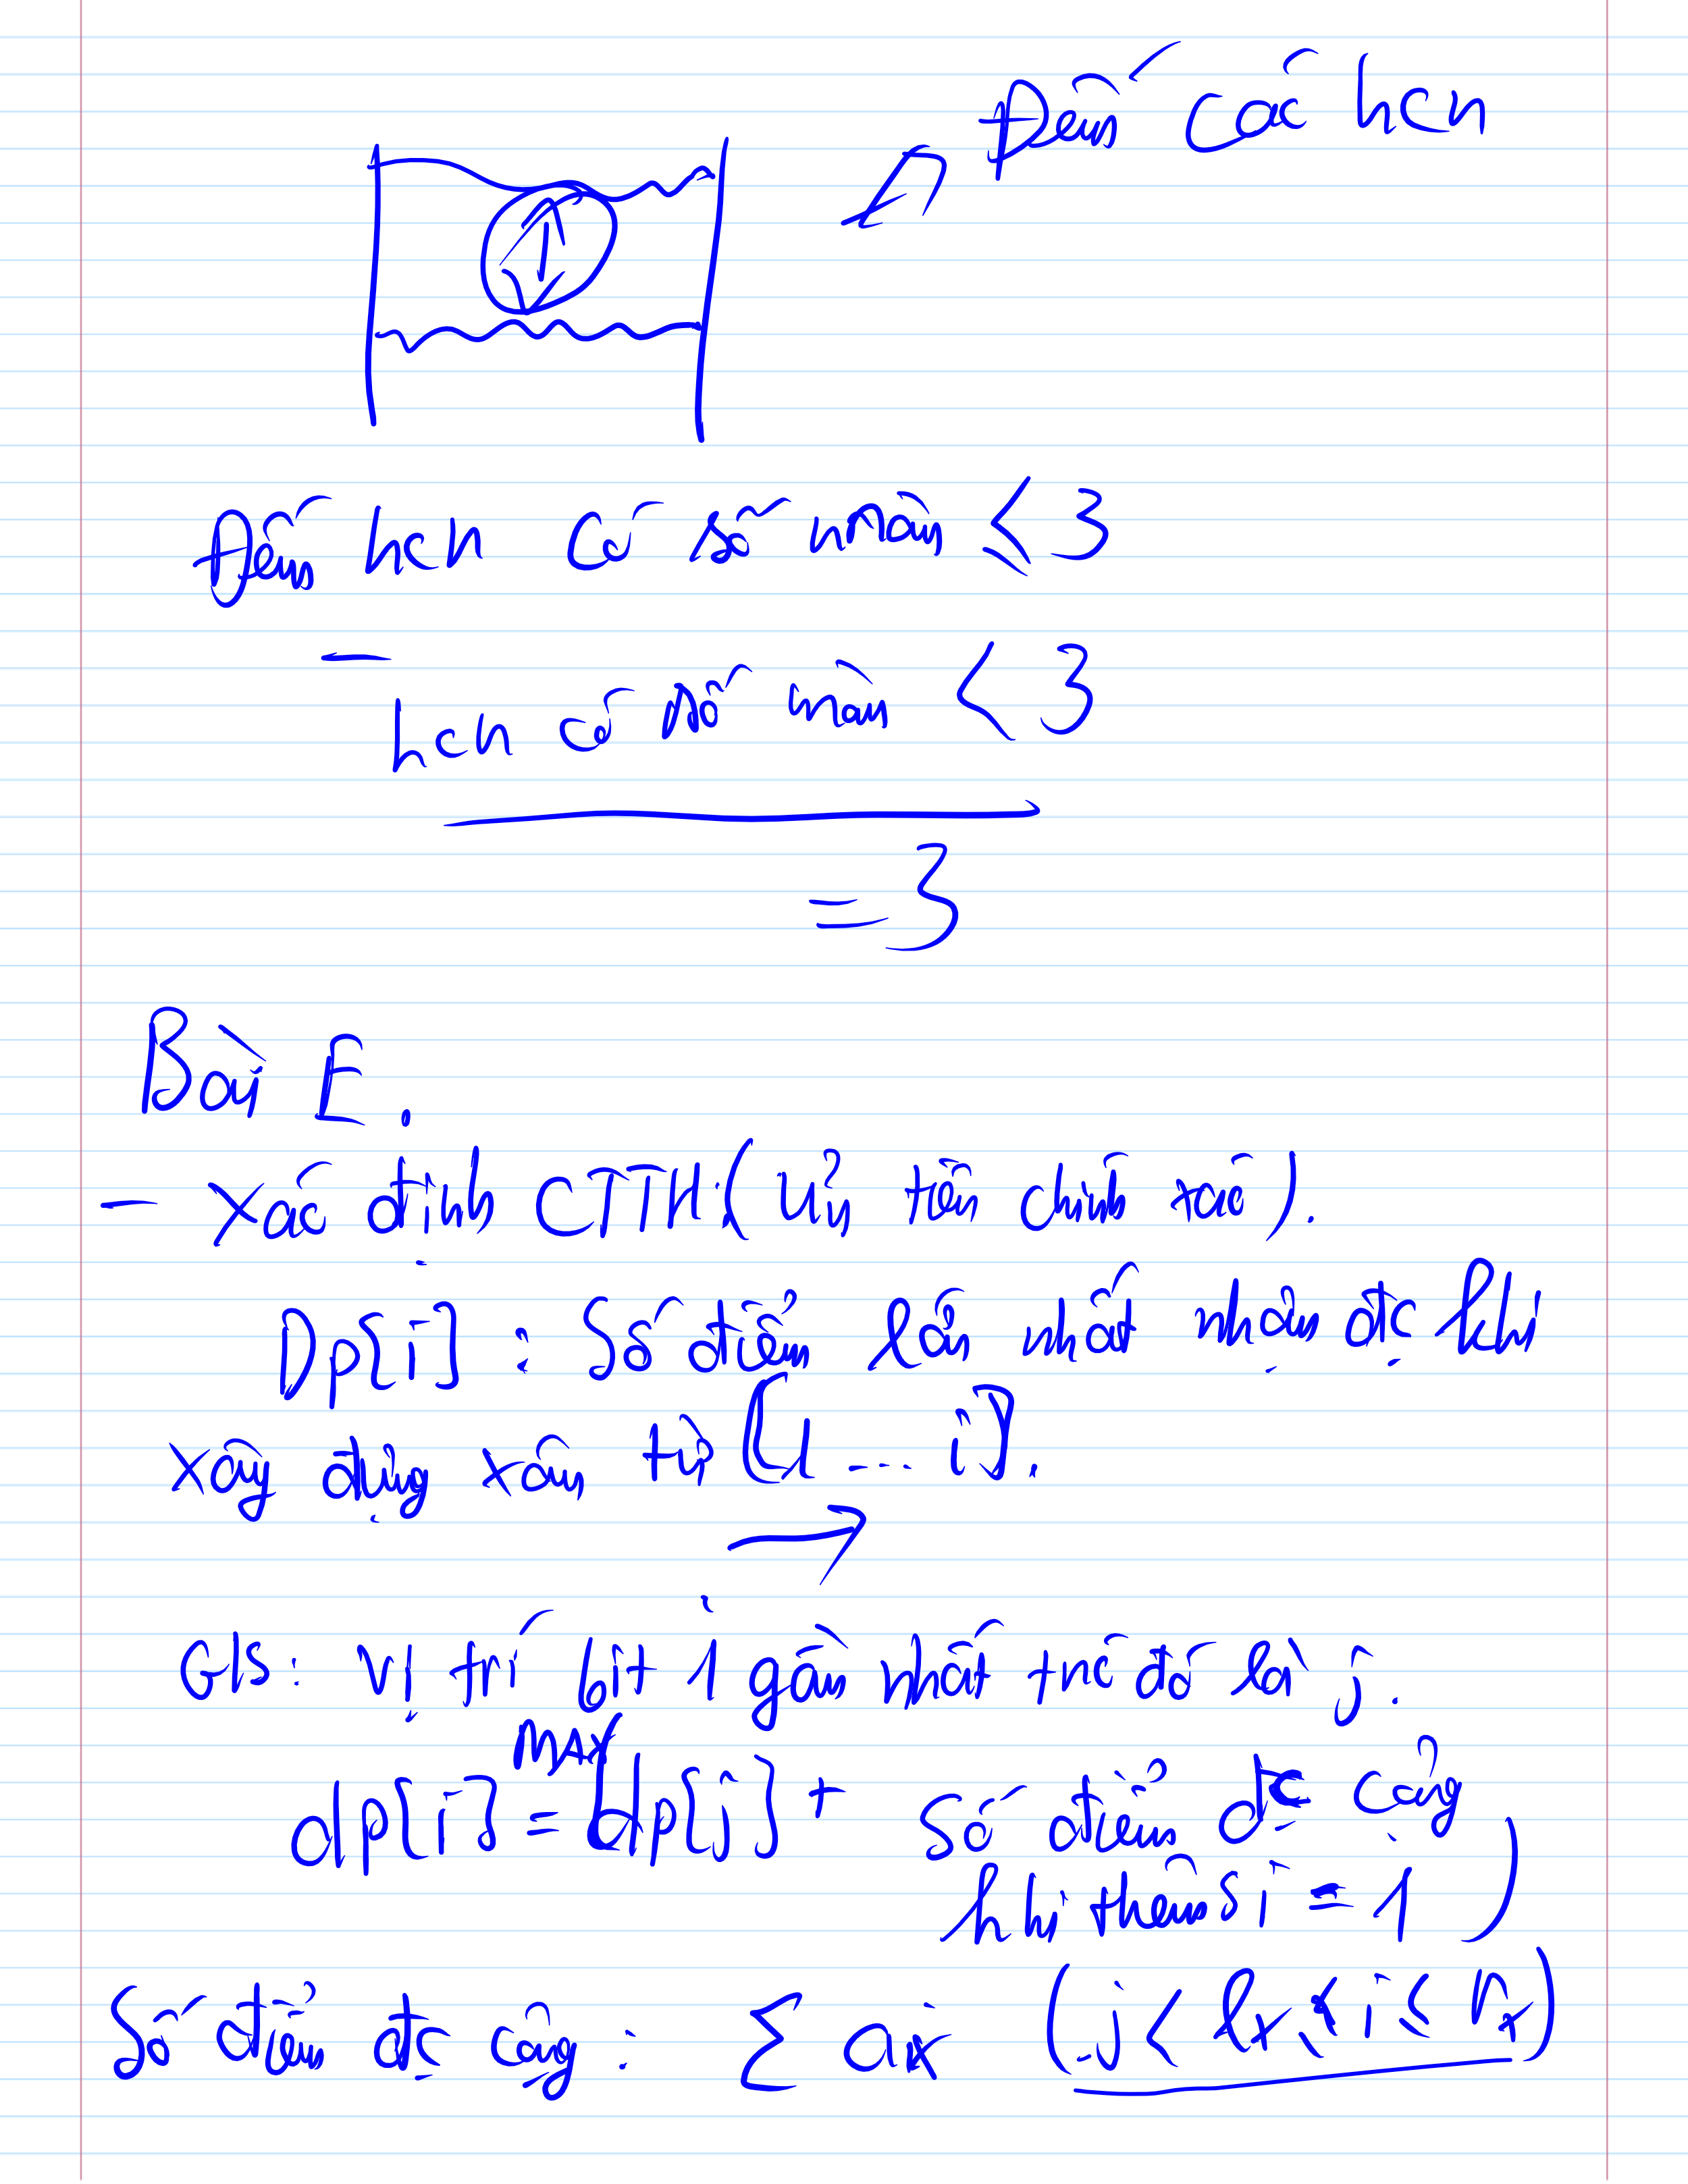 Đếm các hcn
Đếm hcn có số màn < 3
-
hcn có số màn < 3
= 3
Bài E.
- Xác định CTTH: (ưu tiên chính xác).
Dp[i]: Số điểm lớn nhất nhận đc khi
xây dựng xâu từ [1 ... i].
→
G/s: vị trí bit 1 gần nhất trc đó là j.
dp[i] = MAX(dp[j] + số điểm đc cộng
khi thêm si = 1)
Số điểm đc cộng: ∑ ax (j < lx ≤ i ≤ rx)